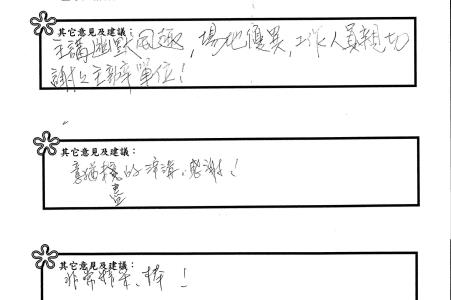 其它意見及建議：
主講幽默風趣，場地優異，工作人員親切
謝謝主辦單位！
其它意見及建議：
意猶未盡的演講，感謝！
其它意見及建議：
非常精采、棒！